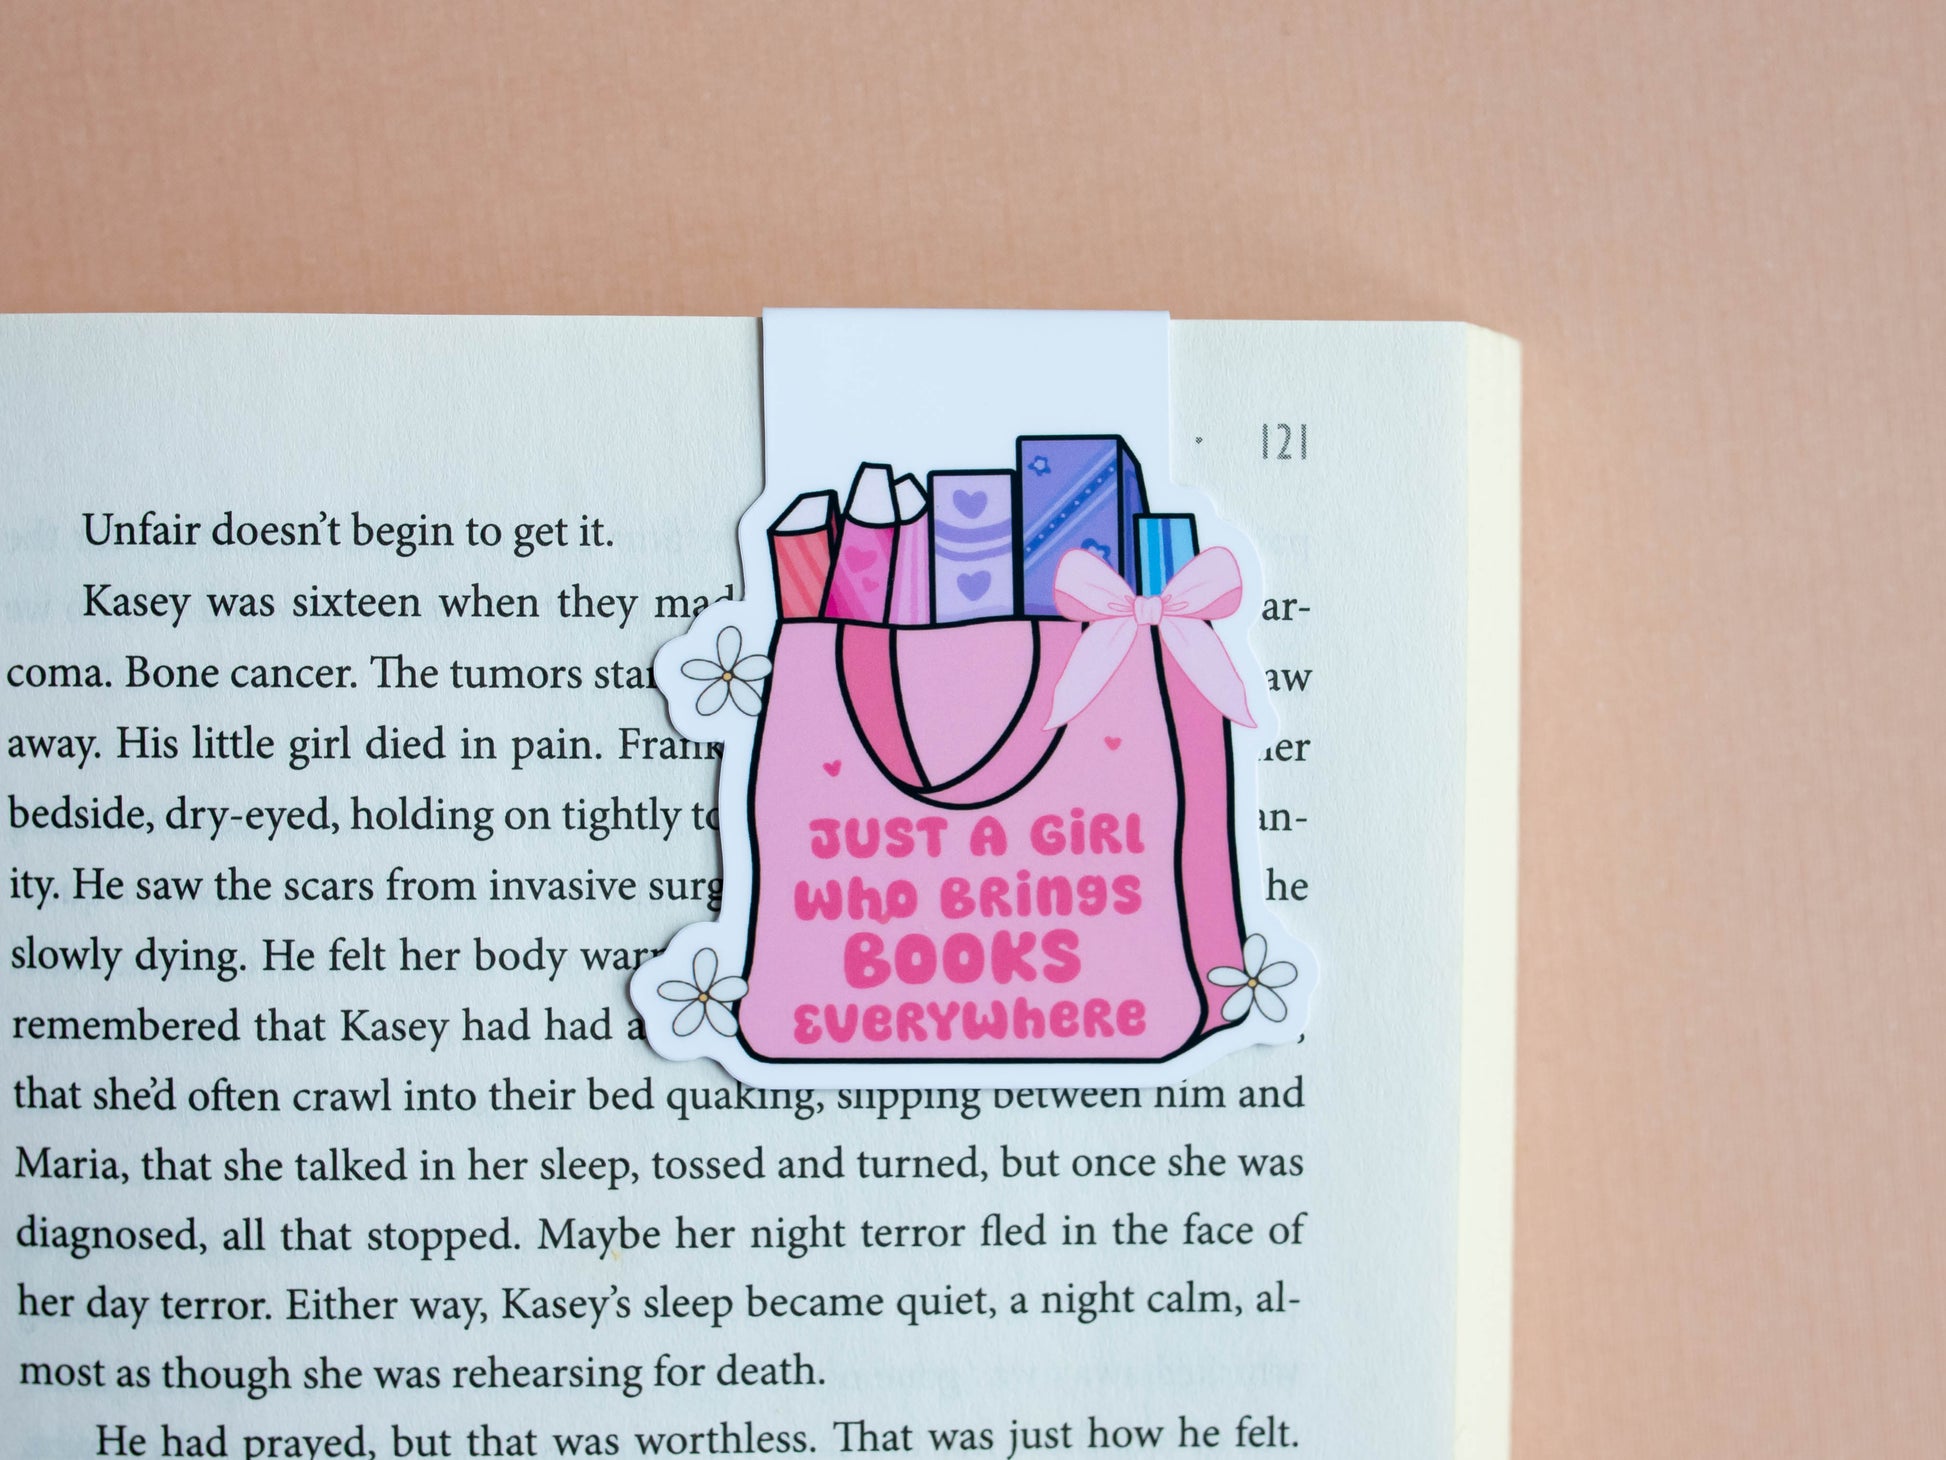 121
Unfair doesn't begin to get it.
Kasey was sixteen when they ar-
coma. Bone cancer. The tumors aw
away. His little girl died in pain. Frank
bedside, dry-eyed, holding on tightly an-
ity. He saw the scars from invasive he
slowly dying. He felt her body
remembered that Kasey had had
that she'd often crawl into their bed quaking, slipping between him and
Maria, that she talked in her sleep, tossed and turned, but once she was
diagnosed, all that stopped. Maybe her night terror fled in the face of
her day terror. Either way, Kasey's sleep became quiet, a night calm, al-
most as though she was rehearsing for death.
He had prayed, but that was worthless. That was just how he felt.
JUST A GiRL
WhO BRinGS
BOOKS
EVERYWhERE